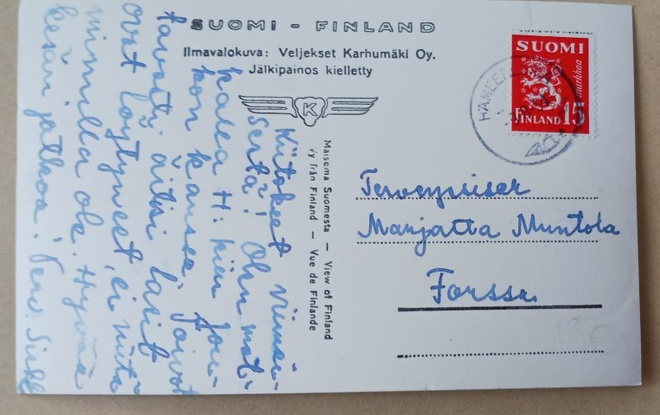 SUOMI - FINLAND
Ilmavalokuva: Veljekset Karhumäki Oy.
Jälkipainos kielletty
K
Maisema Suomesta — View of Finland
Vy från Finland — Vue de Finlande
SUOMI
markkaa
FINLAND 15
Terveyssisar
Marjatta Muntola
Forssa
Kiitokset viimei-
sestä! Olin mat-
kalla H:kiin
kon kanssa.
tavasti äitisi lasit
ovat löytyneet, ei niitä
minulla ole. Hyvää
kesän jatkoa! Terv.